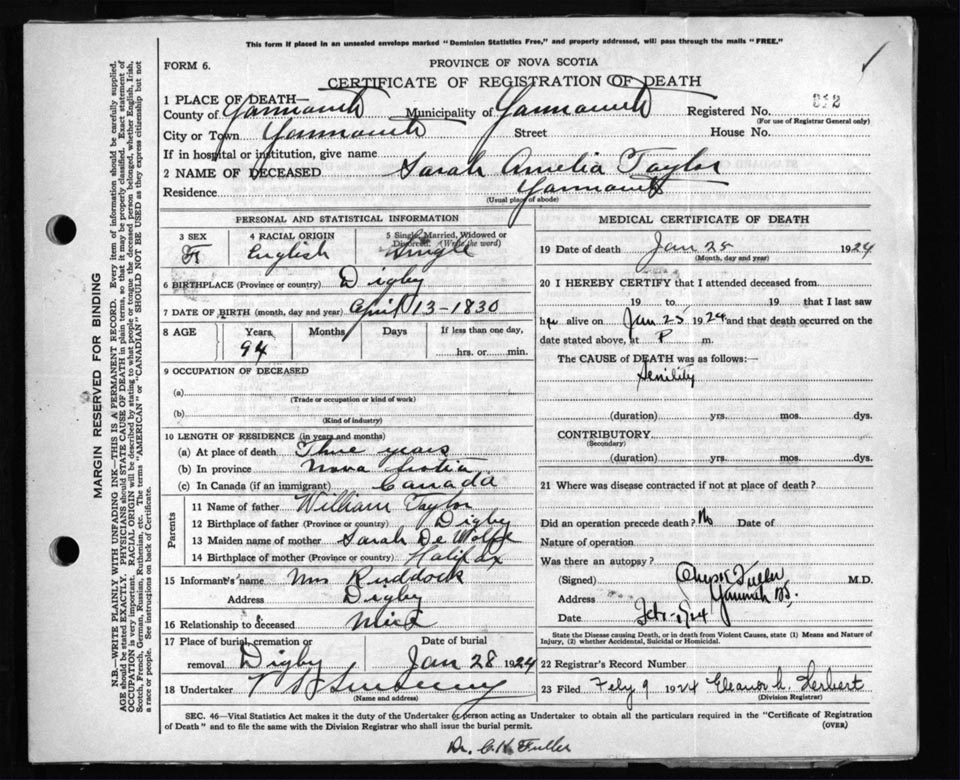 This form if placed in an unsealed envelope marked "Dominion Statistics Free," and properly addressed, will pass through the mails "FREE."
FORM 6.
PROVINCE OF NOVA SCOTIA
CERTIFICATE OF REGISTRATION OF DEATH
1 PLACE OF DEATH—
County of Yarmouth Municipality of Yarmouth Registered No.
(For use of Registrar General only)
City or Town Yarmouth Street House No.
If in hospital or institution, give name
2 NAME OF DECEASED Sarah Amelia Taylor
Residence Yarmouth
(Usual place of abode)
PERSONAL AND STATISTICAL INFORMATION
3 SEX 4 RACIAL ORIGIN 5 Single, Married, Widowed or Divorced. (Write the word)
F English Single
6 BIRTHPLACE (Province or country) Digby
7 DATE OF BIRTH (month, day and year) April 13-1830
8 AGE Years Months Days If less than one day,
94 hrs. or min.
9 OCCUPATION OF DECEASED
(a)
(Trade or occupation or kind of work)
(b)
(Kind of industry)
10 LENGTH OF RESIDENCE (in years and months)
(a) At place of death Three years
(b) In province Nova Scotia
(c) In Canada (if an immigrant) Canada
Parents
11 Name of father William Taylor
12 Birthplace of father (Province or country) Digby
13 Maiden name of mother Sarah De Wolfe
14 Birthplace of mother (Province or country) Halifax
15 Informant's name Mrs Ruddock
Address Digby
16 Relationship to deceased Niece
17 Place of burial, cremation or removal Date of burial
Digby Jan 28 1924
18 Undertaker V S Sweeny
(Name and address)
MEDICAL CERTIFICATE OF DEATH
19 Date of death Jan 25 1924
(Month, day and year)
20 I HEREBY CERTIFY that I attended deceased from
19 to 19 that I last saw
her alive on Jan 25 1924 and that death occurred on the
date stated above, at P m.
The CAUSE of DEATH was as follows:—
Senility
(duration) yrs. mos. dys.
CONTRIBUTORY
(Secondary)
(duration) yrs. mos. dys.
21 Where was disease contracted if not at place of death?
Did an operation precede death? No Date of
Nature of operation
Was there an autopsy?
(Signed) Fuller M.D.
Address Yarmouth NS.
Date
State the Disease causing Death, or in death from Violent Causes, state (1) Means and Nature of
Injury, (2) whether Accidental, Suicidal or Homicidal.
22 Registrar's Record Number
23 Filed Feby 9 1924 Eleanor h. Herbert
(Division Registrar)
SEC. 46—Vital Statistics Act makes it the duty of the Undertaker or person acting as Undertaker to obtain all the particulars required in the "Certificate of Registration
of Death" and to file the same with the Division Registrar who shall issue the burial permit. (OVER)
Dr. G.K. Fuller
MARGIN RESERVED FOR BINDING
N.B.—WRITE PLAINLY WITH UNFADING INK—THIS IS A PERMANENT RECORD. Every item of information should be carefully supplied.
AGE should be stated EXACTLY. PHYSICIANS should STATE CAUSE OF DEATH in plain terms, so that it may be properly classified. Exact statement of
OCCUPATION is very important. RACIAL ORIGIN will be described by stating to what people or tongue the deceased person belonged, whether English, Irish,
Scotch, French, German, Russian, Ruthenian, etc. The terms "AMERICAN" or "CANADIAN" SHOULD NOT BE USED as they express citizenship but not
a race or people. See instructions on back of Certificate.